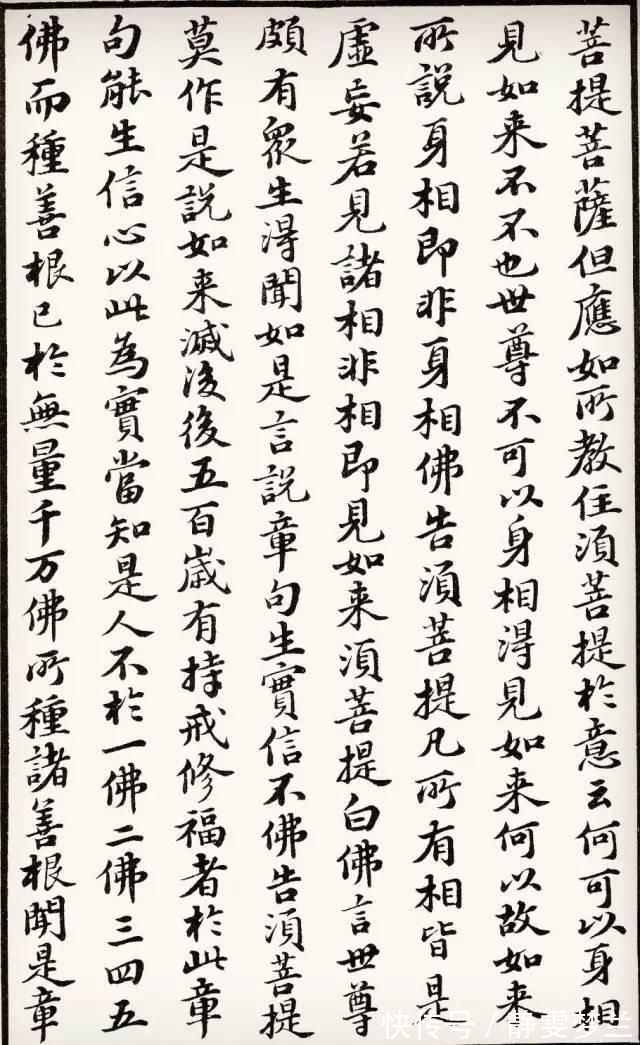 菩提菩薩但應如所教住湏菩提於意云何可以身相
見如来不不也世尊不可以身相淂見如来何以故如来
所說身相即非身相佛告湏菩提凡所有相皆是
虛妄若見諸相非相即見如来湏菩提白佛言世尊
頗有眾生淂聞如是言說章句生實信不佛告湏菩提
莫作是說如来滅後後五百歲有持戒修福者於此章
句能生信心以此為實當知是人不於一佛二佛三四五
佛而種善根已於無量千万佛所種諸善根聞是章
快传号/静雯梦兰